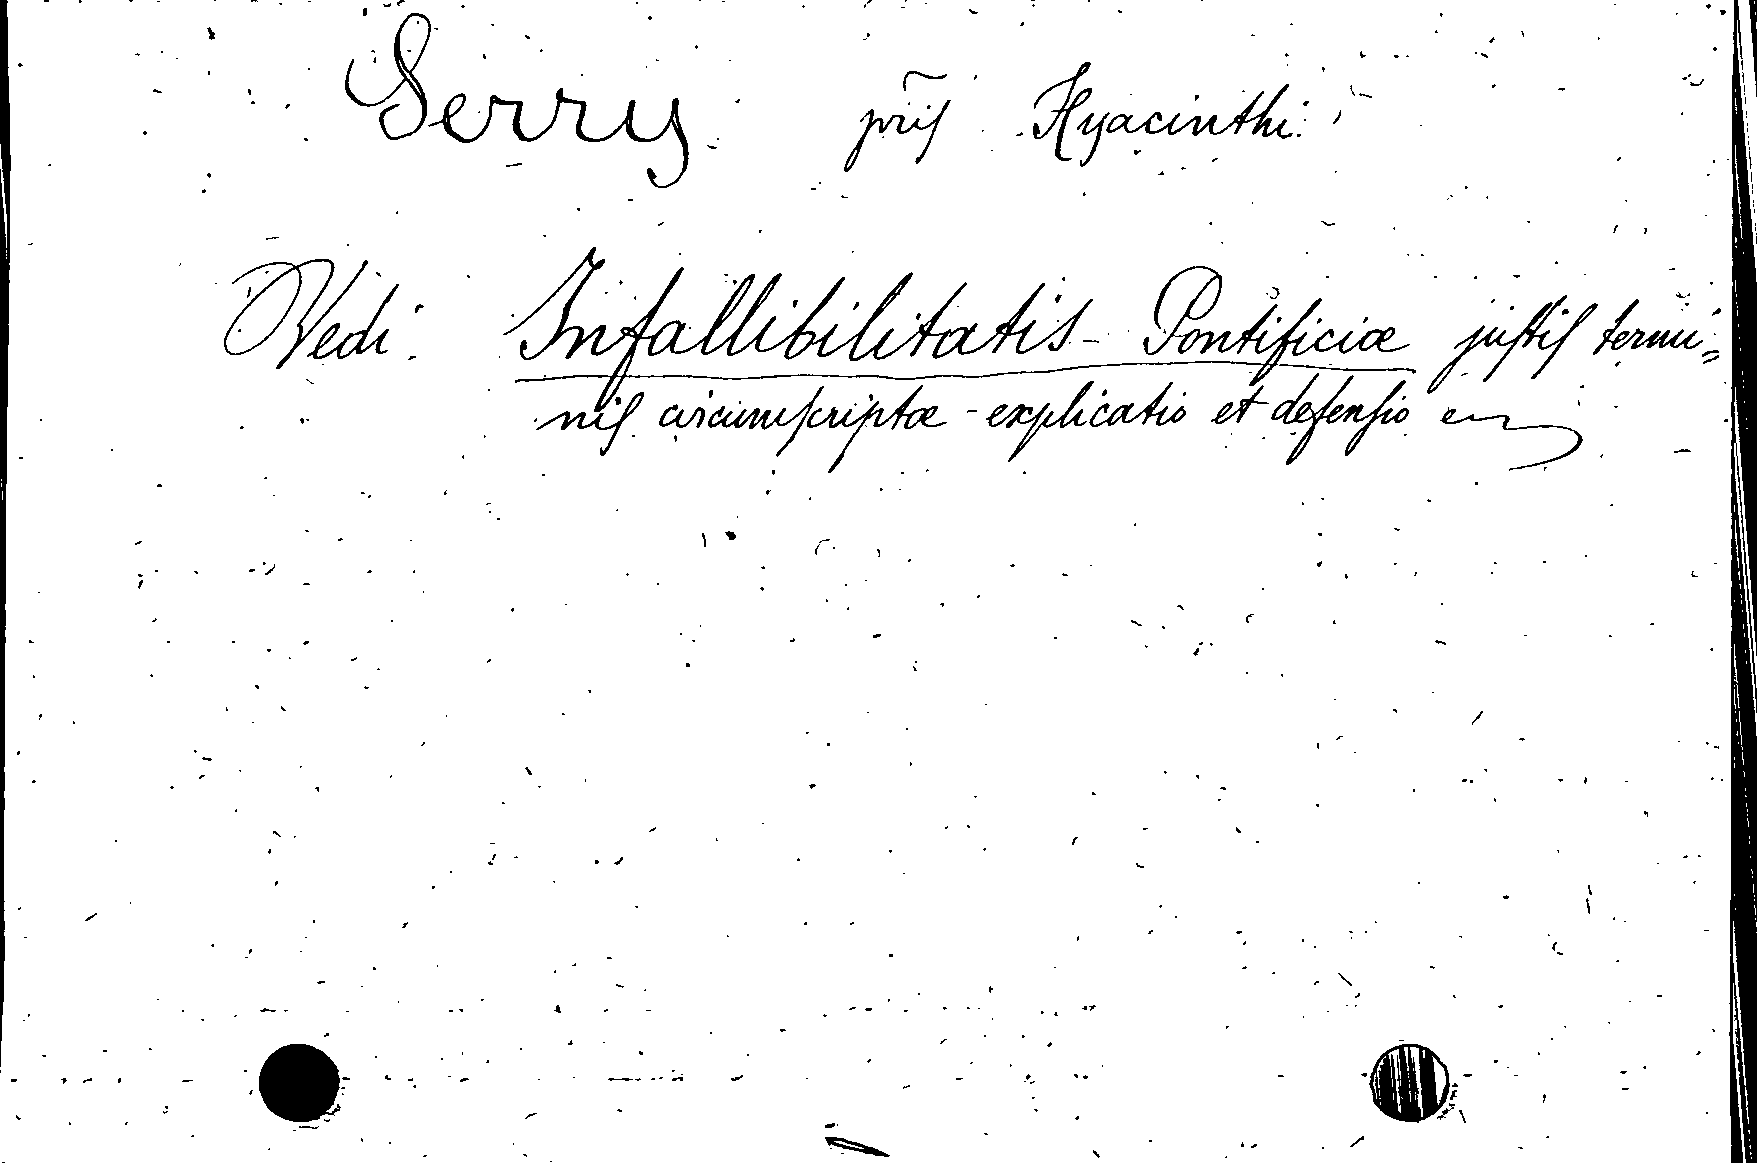 Serry pr̃is Hyacinthi.
Vedi. Infallibilitatis - Pontificiæ juſtiſ termi=
niſ circumſcriptæ - explicatio et defenſio